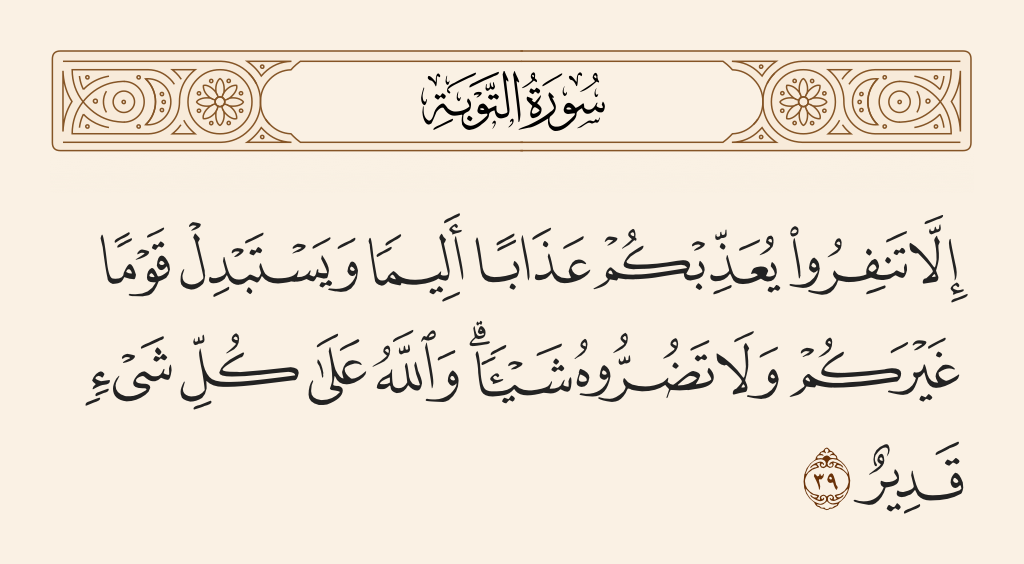 سُورَةُ التَّوْبَةِ
إِلَّا تَنفِرُوا۟ يُعَذِّبْكُمْ عَذَابًا أَلِيمًا وَيَسْتَبْدِلْ قَوْمًا
غَيْرَكُمْ وَلَا تَضُرُّوهُ شَيْـًٔا ۗ وَٱللَّهُ عَلَىٰ كُلِّ شَىْءٍ
قَدِيرٌ ٣٩